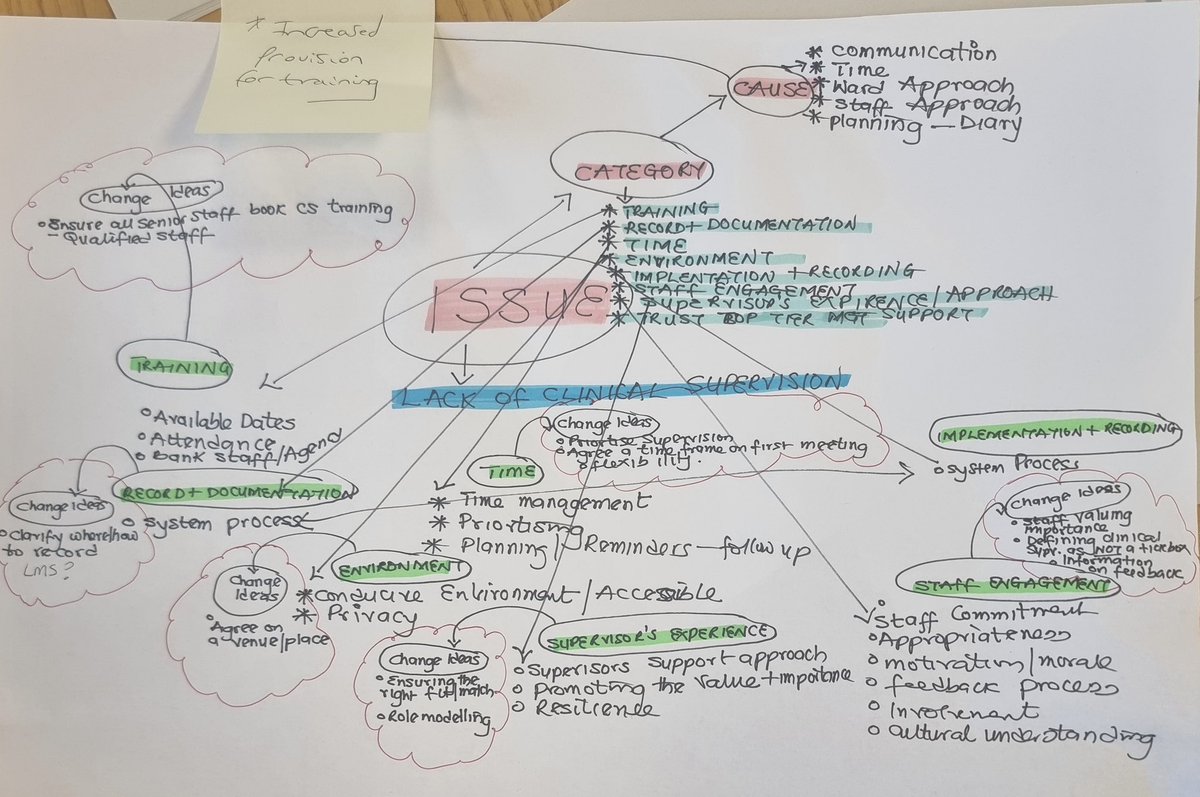 * Increased
Provision
for training
CAUSE
* Communication
* Time
* Ward Approach
* Staff Approach
* planning — Diary
CATEGORY
* TRAINING
* RECORD + DOCUMENTATION
* TIME
* ENVIRONMENT
* IMPLENTATION + RECORDING
* STAFF ENGAGEMENT
* SUPERVISOR'S EXPIRENCE / APPROACH
* TRUST TOP TIER MGT SUPPORT
Change Ideas
Ensure all senior staff book CS training
- Qualified staff
ISSUE
LACK OF CLINICAL SUPERVISION
TRAINING
Available Dates
Attendance
Bank staff/Agend
Change Ideas
Clarify where/how
to record
LMS?
RECORD + DOCUMENTATION
System process
TIME
Change Ideas
Prioritise Supervision
Agree a time frame on first meeting
flexibility.
* Time management
* Prioritising
* Planning / Reminders — follow up
IMPLEMENTATION + RECORDING
System Process
Change Ideas
Staff valuing
importance
Defining clinical
Supr. as NOT a tickbox
Information
on feedback
ENVIRONMENT
* Conducive Environment / Accessible
* Privacy
Change
Ideas
Agree on
a venue/place
STAFF ENGAGEMENT
Staff Commitment
Appropriateness
motivation/morale
feedback process
Involvement
Cultural understanding
SUPERVISOR'S EXPERIENCE
Supervisors support approach
Promoting the value + importance
Resilience
Change Ideas
Ensuring the
right fit/match
Role modelling